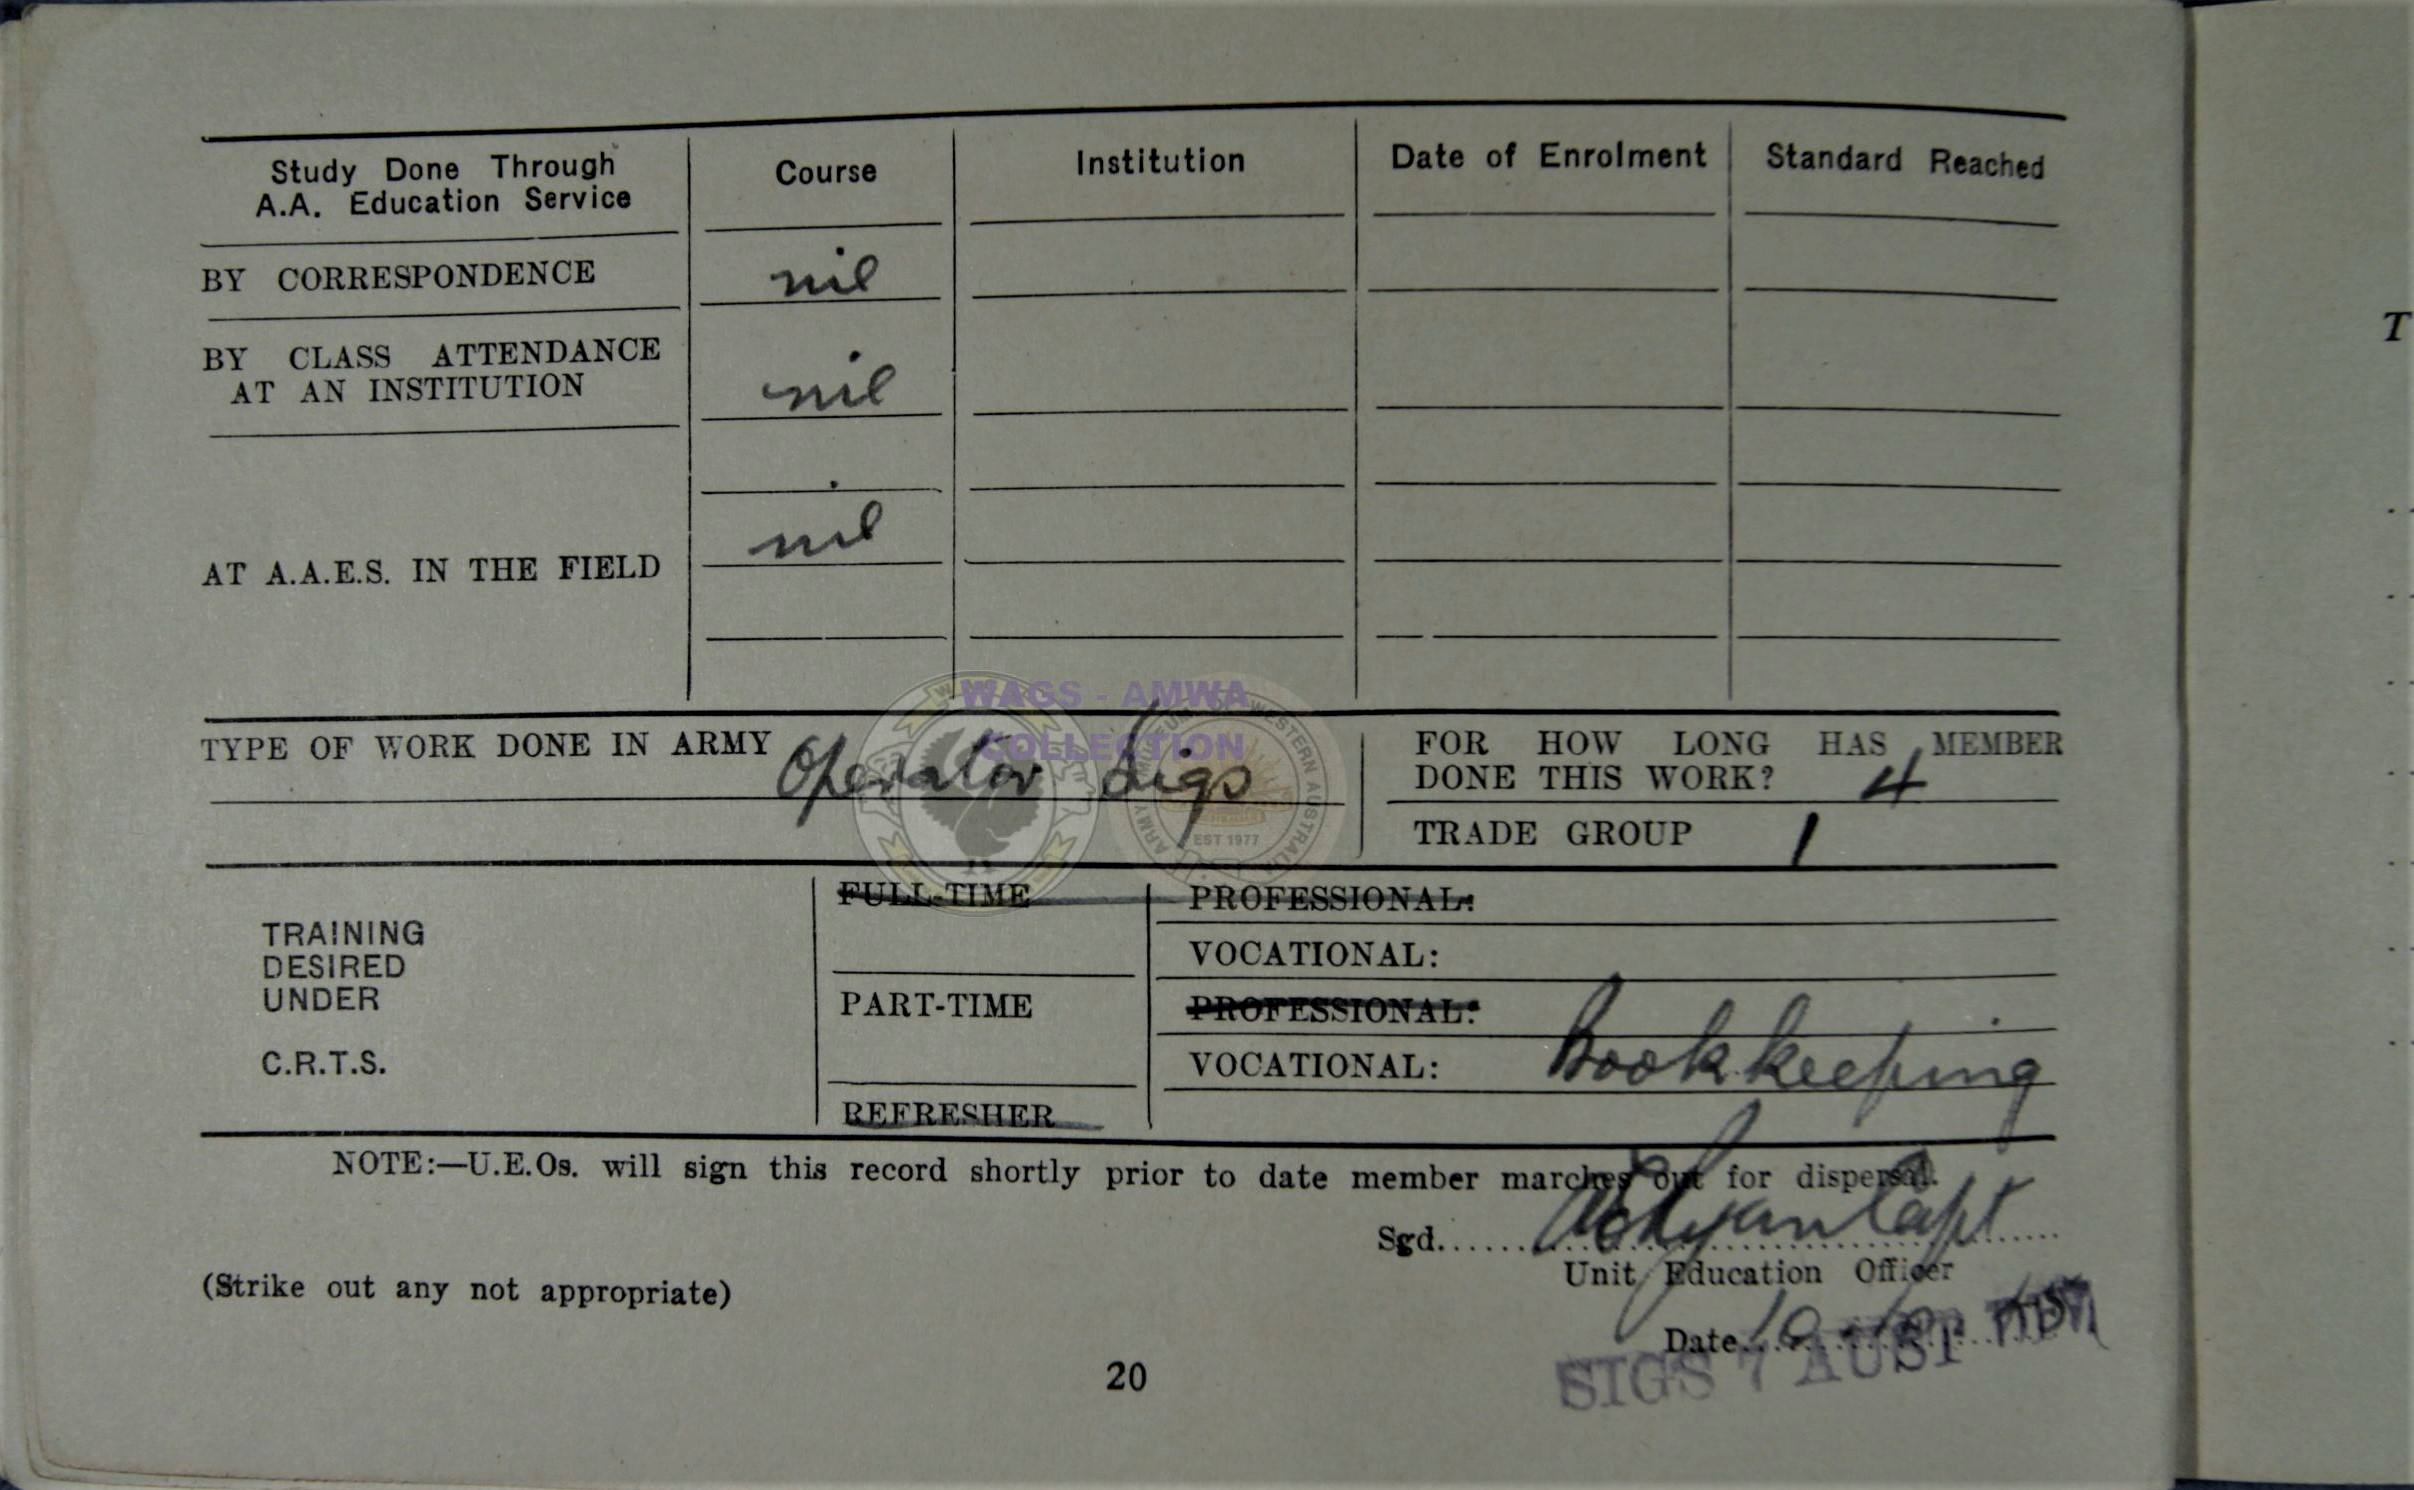 Study Done Through Course Institution Date of Enrolment Standard Reached
A.A. Education Service
BY CORRESPONDENCE nil
BY CLASS ATTENDANCE
AT AN INSTITUTION nil
nil
AT A.A.E.S. IN THE FIELD
WAGS - AMWA
COLLECTION
TYPE OF WORK DONE IN ARMY Operator Sigs
FOR HOW LONG HAS MEMBER
DONE THIS WORK? 4
TRADE GROUP 1
EST 1977
TRAINING
DESIRED
UNDER
C.R.T.S.
FULL-TIME PROFESSIONAL:
VOCATIONAL:
PART-TIME PROFESSIONAL:
VOCATIONAL: Bookkeeping
REFRESHER
NOTE:—U.E.Os. will sign this record shortly prior to date member marches out for dispersal.
Sgd. Capt
Unit Education Officer
(Strike out any not appropriate)
Date 10
SIGS 7 AUST DIV
20
T